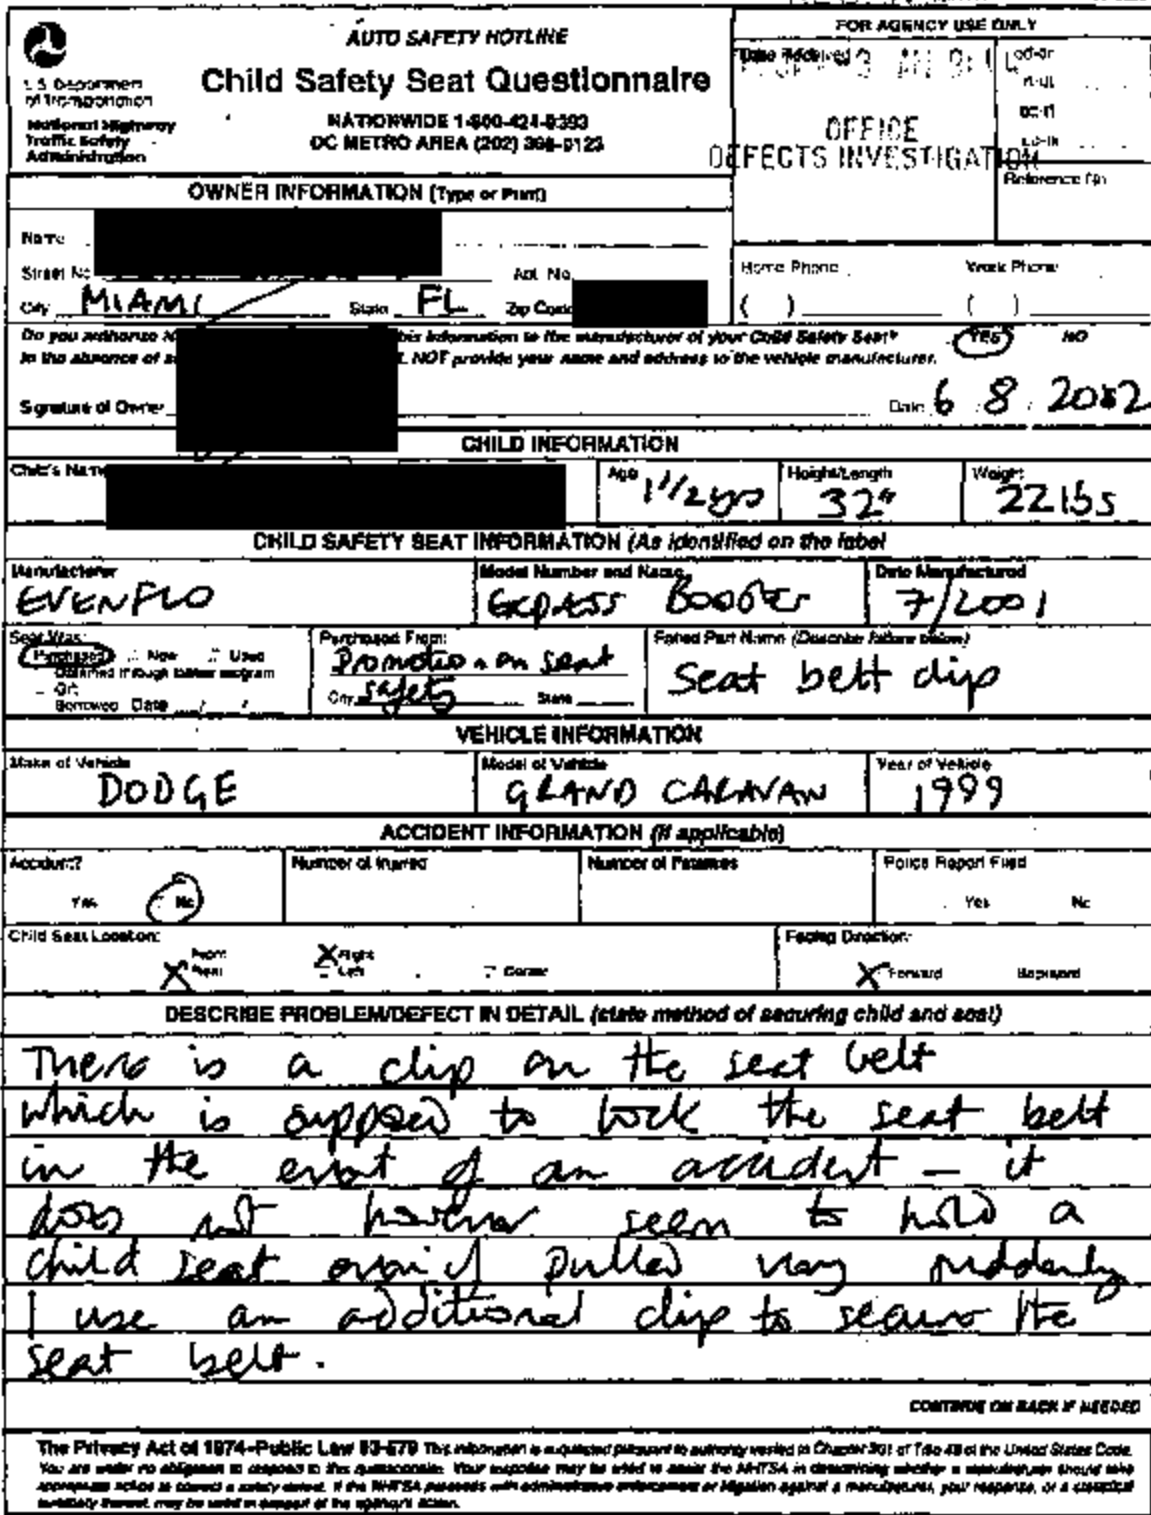 AUTO SAFETY HOTLINE
Child Safety Seat Questionnaire
NATIONWIDE 1-800-424-9393
DC METRO AREA (202) 366-0123
U.S. Department
of Transportation
National Highway
Traffic Safety
Administration
FOR AGENCY USE ONLY
Date Received
OFFICE
DEFECTS INVESTIGATION
Reference No
OWNER INFORMATION (Type or Print)
Name
Street No Apt. No.
City MIAMI State FL Zip Code
Home Phone Work Phone
( ) ( )
Do you authorize this information to the manufacturer of your Child Safety Seat? YES NO
In the absence of NOT provide your name and address to the vehicle manufacturer.
Signature of Owner Date 6 8 2002
CHILD INFORMATION
Child's Name Age 1 1/2 yrs Height/Length 32" Weight 22 lbs
CHILD SAFETY SEAT INFORMATION (As identified on the label
Manufacturer Model Number and Name Date Manufactured
EVENFLO Express Booster 7/2001
Seat Was: Purchased From: Failed Part Name (Describe failure below)
Purchased New Used Promotion on seat
Obtained through loaner program safety
Gift City State Seat belt clip
Borrowed Date / /
VEHICLE INFORMATION
Make of Vehicle Model of Vehicle Year of Vehicle
DODGE GRAND CARAVAN 1999
ACCIDENT INFORMATION (if applicable)
Accident? Number of Injured Number of Fatalities Police Report Filed
Yes No Yes No
Child Seat Location: Facing Direction:
Front X Right
X Rear Left Center X Forward Rearward
DESCRIBE PROBLEM/DEFECT IN DETAIL (state method of securing child and seat)
There is a clip on the seat belt
which is supposed to lock the seat belt
in the event of an accident – it
does not however seem to hold a
child seat even if pulled very suddenly
I use an additional clip to secure the
seat belt.
CONTINUE ON BACK IF NEEDED
The Privacy Act of 1974-Public Law 93-579 This information is requested pursuant to authority vested in Chapter 301 of Title 49 of the United States Code.
You are under no obligation to respond to this questionnaire. Your response may be used to assist the NHTSA in determining whether a manufacturer should take
appropriate action to correct a safety defect. If the NHTSA proceeds with administrative enforcement or litigation against a manufacturer, your response, or a statistical
summary thereof, may be used in support of the agency's action.